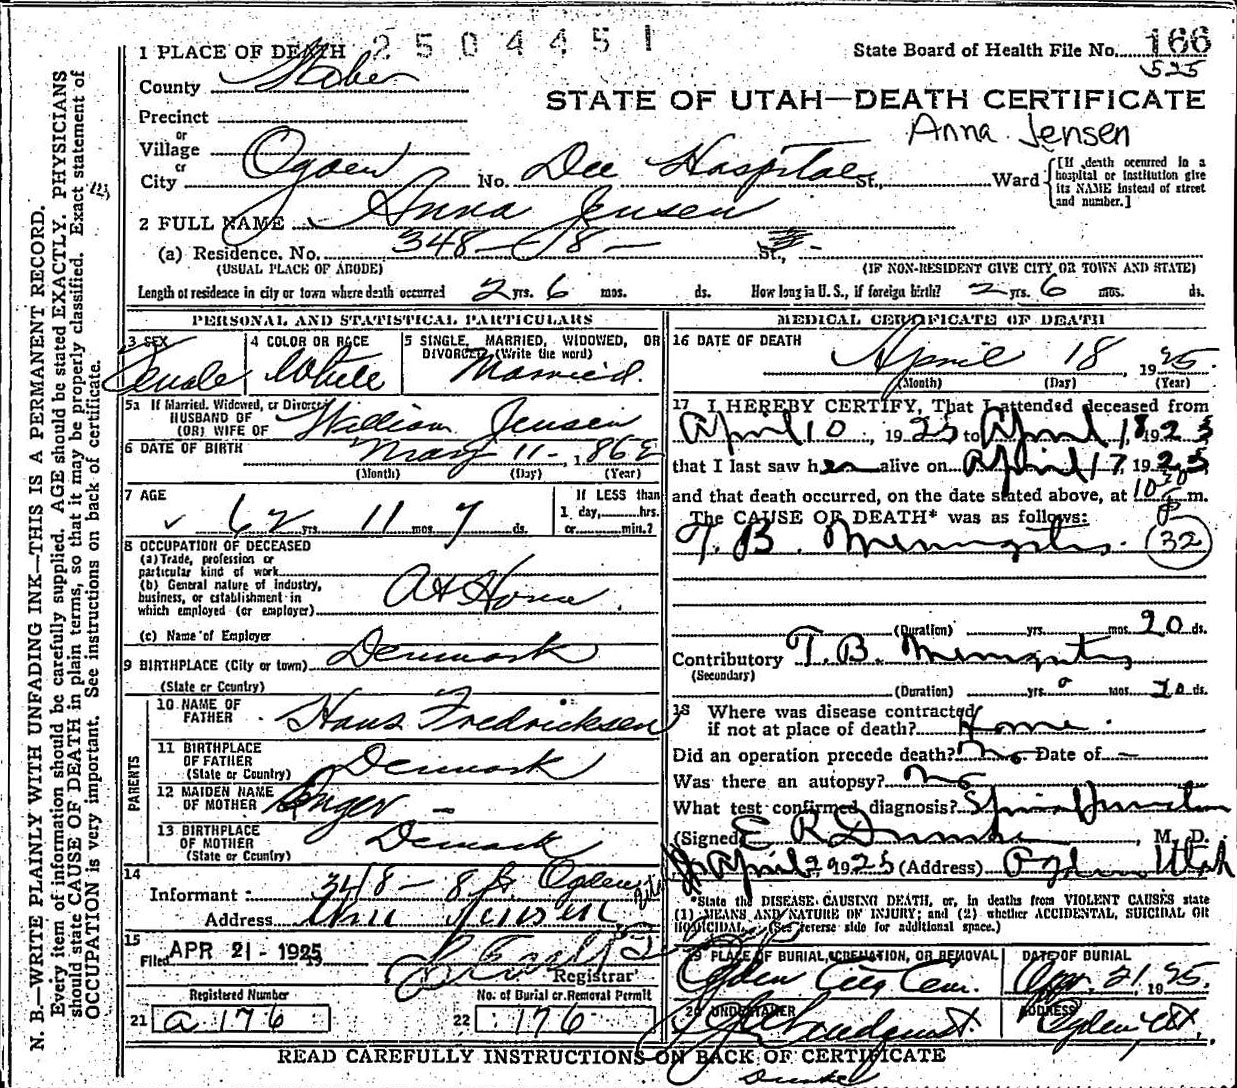 2504451
1 PLACE OF DEATH
State Board of Health File No. 166
525
County Weber
STATE OF UTAH—DEATH CERTIFICATE
Anna Jensen
Precinct
or
Village
or
City Ogden No. Dee Hospital St., Ward
[If death occurred in a hospital or institution give its NAME instead of street and number.]
2 FULL NAME Anna Jensen
(a) Residence. No. 348 - 8 - St.,
(USUAL PLACE OF ABODE) (IF NON-RESIDENT GIVE CITY OR TOWN AND STATE)
Length of residence in city or town where death occurred 2 yrs. 6 mos. ds. How long in U.S., if foreign birth? 2 yrs. 6 mos. ds.
PERSONAL AND STATISTICAL PARTICULARS
3 SEX Female
4 COLOR OR RACE White
5 SINGLE, MARRIED, WIDOWED, OR DIVORCED (Write the word) Married
5a If Married, Widowed, or Divorced
HUSBAND OF
(OR) WIFE OF William Jensen
6 DATE OF BIRTH May 11 - 186
(Month) (Day) (Year)
7 AGE 62 yrs. 11 mos. 7 ds.
If LESS than
1 day, hrs.
or min.?
8 OCCUPATION OF DECEASED
(a) Trade, profession or
particular kind of work
(b) General nature of industry,
business, or establishment in
which employed (or employer) At Home
(c) Name of Employer
9 BIRTHPLACE (City or town) Denmark
(State or Country)
PARENTS
10 NAME OF FATHER Hans Fredricksen
11 BIRTHPLACE OF FATHER (State or Country) Denmark
12 MAIDEN NAME OF MOTHER Inger -
13 BIRTHPLACE OF MOTHER (State or Country) Demark
14
Informant: 348 - 8 St. Ogden
Address Wm Jensen
15
Filed APR 21-1925
Registrar
Registered Number
21 a 176
No. of Burial or Removal Permit
22 176
MEDICAL CERTIFICATE OF DEATH
16 DATE OF DEATH
April 18, 1925
(Month) (Day) (Year)
17 I HEREBY CERTIFY, That I attended deceased from
April 10, 1925 to April 18, 1925
that I last saw her alive on April 17, 1925
and that death occurred, on the date stated above, at 10 30 P m.
The CAUSE OF DEATH* was as follows:
T. B. Meningitis. 32
(Duration) yrs. mos. 20 ds.
Contributory T. B. Meningitis
(Secondary)
(Duration) yrs. mos. 20 ds.
18 Where was disease contracted
if not at place of death? Home
Did an operation precede death? No Date of —
Was there an autopsy? No
What test confirmed diagnosis? Spinal Puncture
(Signed) E R Dumke M. D.
April 1925 (Address) Ogden Utah
*State the DISEASE CAUSING DEATH, or, in deaths from VIOLENT CAUSES state
(1) MEANS AND NATURE OF INJURY; and (2) whether ACCIDENTAL, SUICIDAL OR
HOMICIDAL. (See reverse side for additional space.)
19 PLACE OF BURIAL, CREMATION, OR REMOVAL
Ogden City Cem.
DATE OF BURIAL
Apr. 21, 1925.
20 UNDERTAKER
ADDRESS
Ogden, Ut.
READ CAREFULLY INSTRUCTIONS ON BACK OF CERTIFICATE
Dumke
N. B.—WRITE PLAINLY WITH UNFADING INK—THIS IS A PERMANENT RECORD.
Every item of information should be carefully supplied. AGE should be stated EXACTLY. PHYSICIANS
should state CAUSE OF DEATH in plain terms, so that it may be properly classified. Exact statement of
OCCUPATION is very important. See instructions on back of certificate.